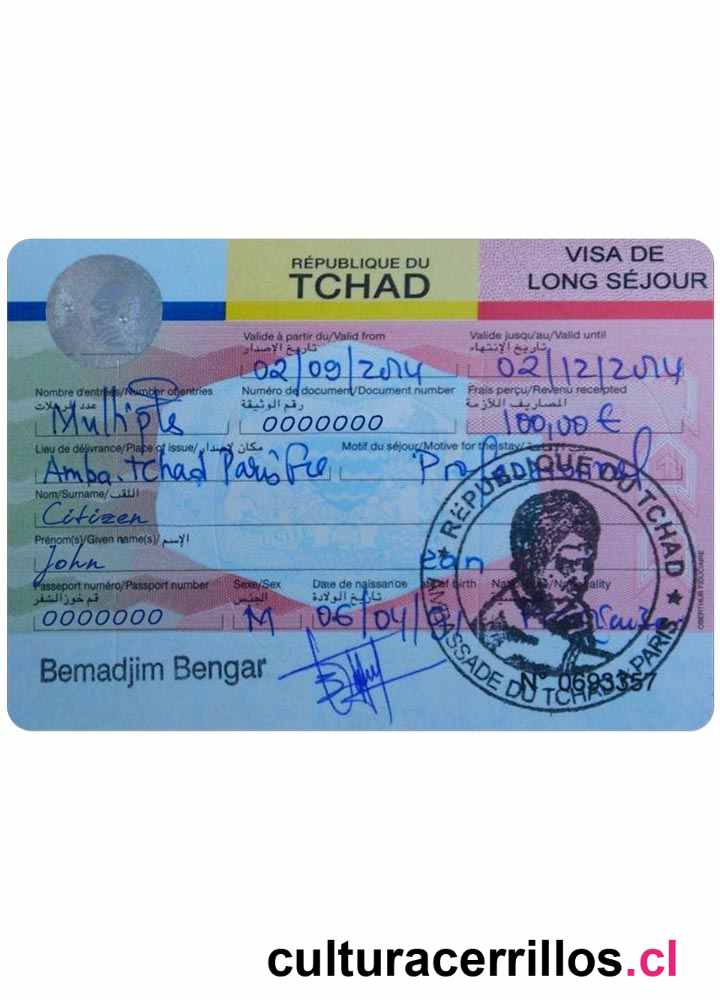 RÉPUBLIQUE DU
TCHAD
VISA DE
LONG SÉJOUR
Valide à partir du/Valid from
تاريخ الإصدار
02/09/2014
Valide jusqu'au/Valid until
تاريخ الإنتهاء
02/12/2014
Nombre d'entrées/Number of entries
عدد الرحلات
Multiple
Numéro de document/Document number
رقم الوثيقة
0000000
Frais perçu/Revenu recepted
المصاريف اللازمة
100,00 €
Lieu de délivrance/Place of issue/مكان لإصدار
Amba. Tchad Paris
Motif du séjour/Motive for the stay/
Professionnel
Nom/Surname/اللقب
Citizen
Prénom(s)/Given name(s)/الإسم
John
ean
Passeport numéro/Passport number
0000000
Sexe/Sex
الجنس
M
Date de naissance
of birth
تاريخ الولادة
06/04/
Bemadjim Bengar
RÉPUBLIQUE DU TCHAD
AMBASSADE DU TCHAD A PARIS
N° 0693357
OBERTHUR FIDUCIAIRE
culturacerrillos.cl